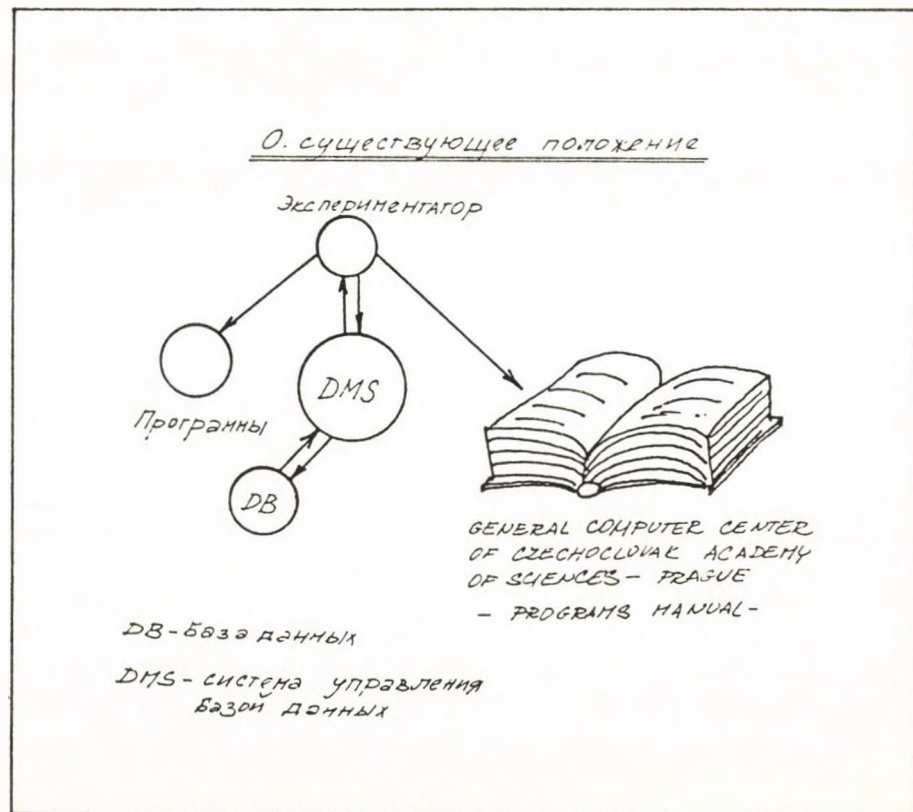 0. существующее положение
Экспериментатор
DMS
Программы
DB
GENERAL COMPUTER CENTER
OF CZECHOCLOVAK ACADEMY
OF SCIENCES - PRAGUE
- PROGRAMS MANUAL -
DB - база данных
DMS - система управления
базой данных